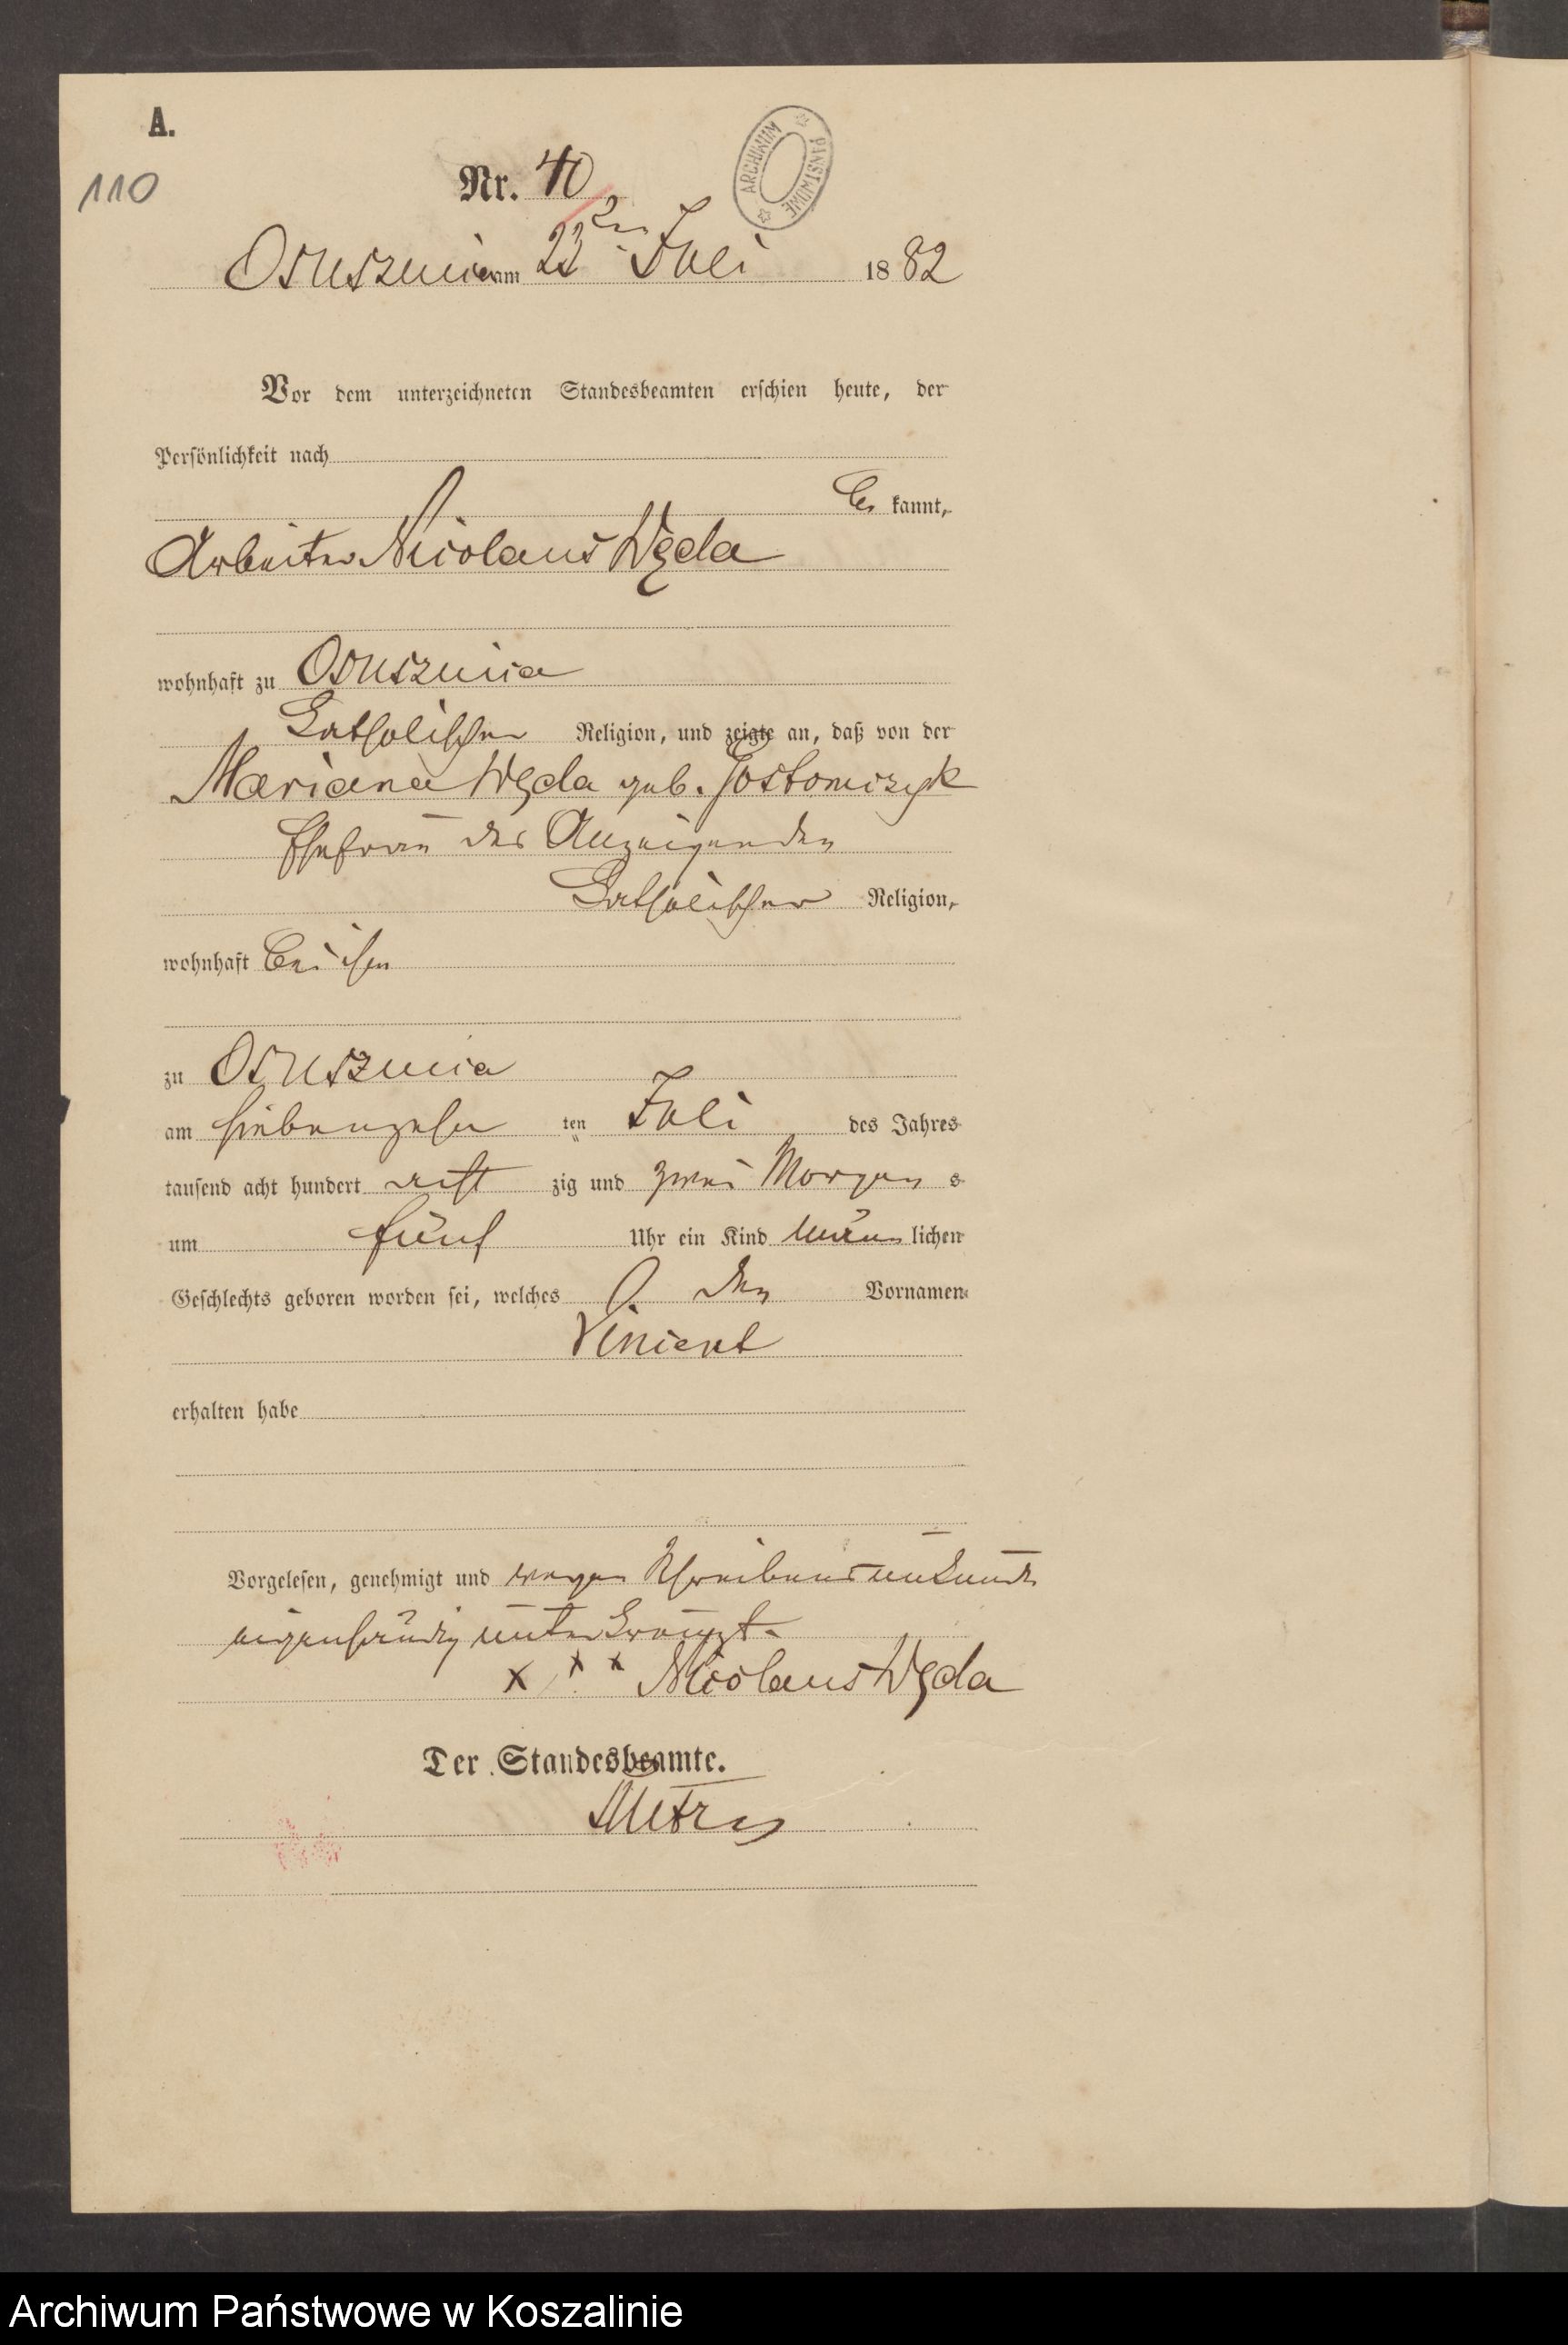 A.
110
Nr. 40
ARCHIWUM PAŃSTWOWE
Osusznica am 22ten Juli 1882
Vor dem unterzeichneten Standesbeamten erschien heute, der
Persönlichkeit nach
be kannt,
Arbeiter Nicolaus Węda
wohnhaft zu Osusznica
katholischer Religion, und zeigte an, daß von der
Mariana Węda geb. Gostomczyk
Ehefrau des Anzeigenden
katholischer Religion,
wohnhaft bei ihm
zu Osusznica
am siebenzehn ten Juli des Jahres
tausend acht hundert acht zig und zwei Morgen s
um fünf Uhr ein Kind männ lichen
Geschlechts geboren worden sei, welches den Vornamen
Vincent
erhalten habe
Vorgelesen, genehmigt und wegen Schreibensunkunde
eigenhändig unterkreuzt.
x x x Nicolaus Węda
Der Standesbeamte.
Archiwum Państwowe w Koszalinie